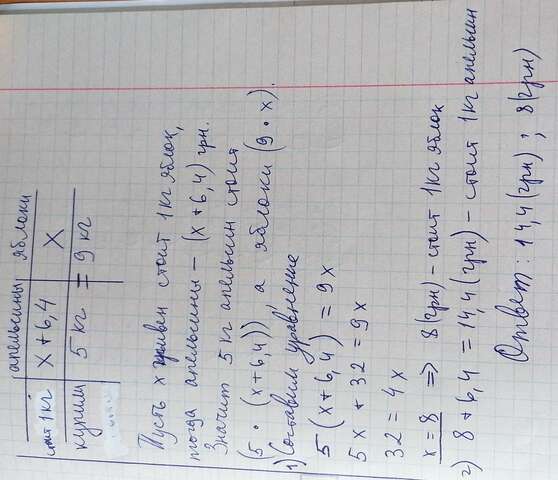 апельсины яблоки
стоит 1кг x + 6,4 x
купили 5 кг = 9 кг
Пусть x гривен стоит 1 кг яблок,
тогда апельсины – (x + 6,4) грн.
Значит 5 кг апельсин стоит
(5 • (x + 6,4)), а яблоки (9 • x).
1) Составим уравнение
5 (x + 6,4) = 9x
5x + 32 = 9x
32 = 4x
x = 8 => 8 (грн) – стоит 1кг яблок
2) 8 + 6,4 = 14,4 (грн) – стоит 1кг апельсин
Ответ: 14,4 (грн) ; 8 (грн)